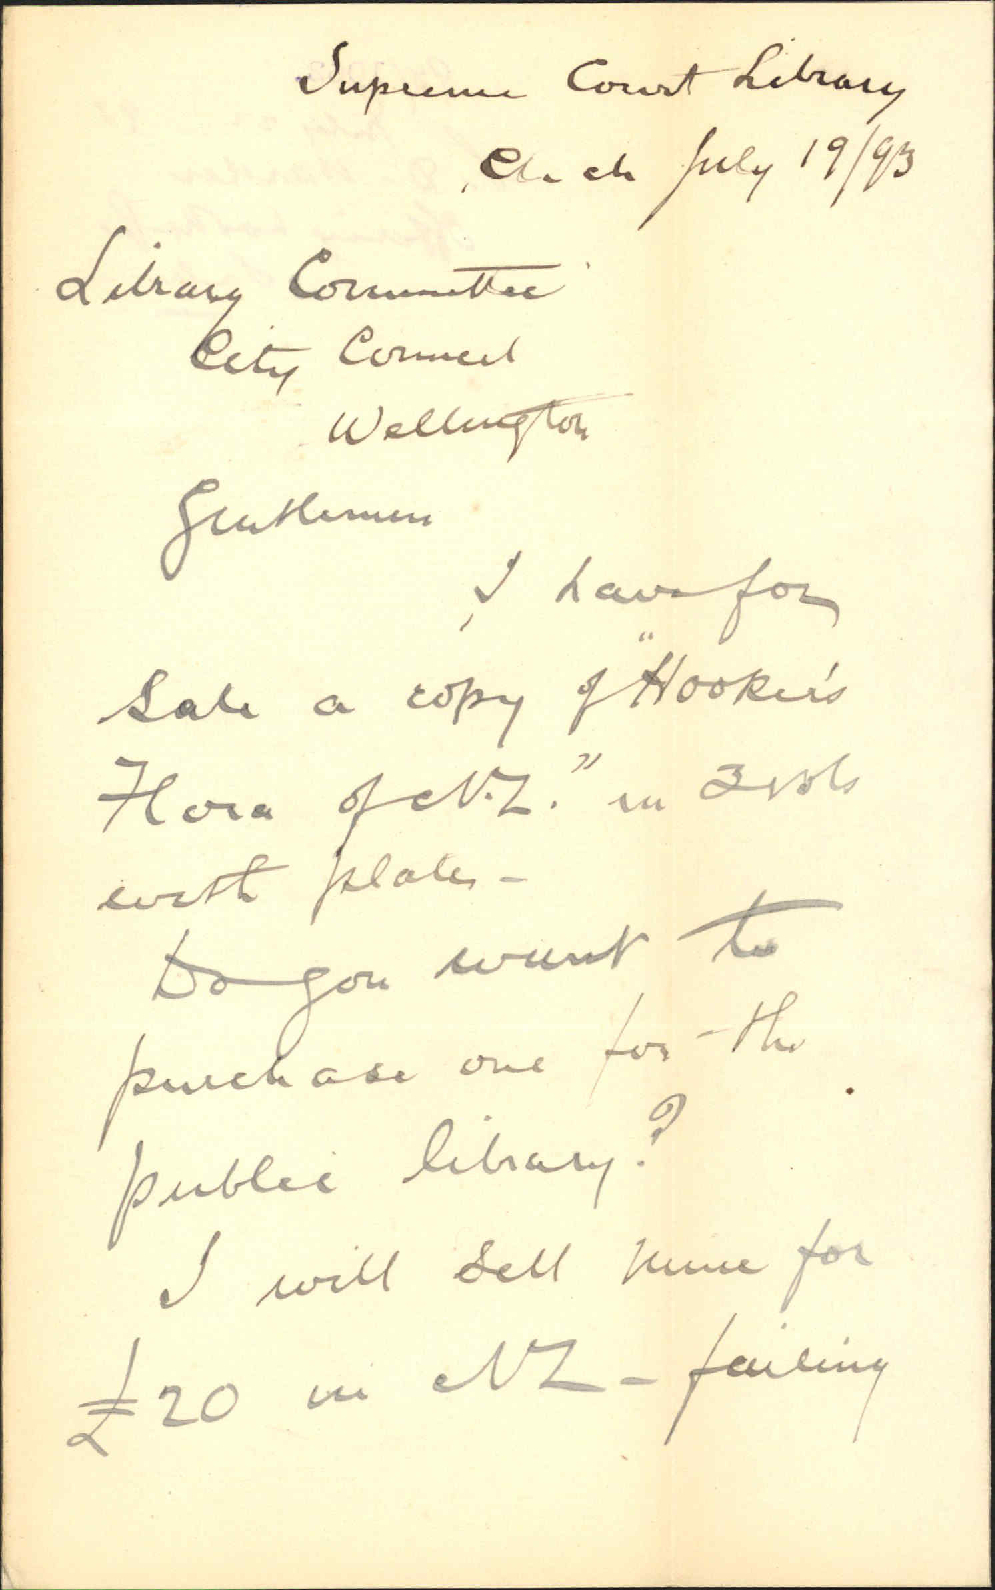 Supreme Court Library
Ch ch July 19/93
Library Committee
City Council
Wellington
Gentlemen
I have for
Sale a copy of "Hooker's
Flora of N.Z." in 3 vols
with plates -
Do you want to
purchase one for the
public library?
I will sell mine for
£20 in NZ - failing